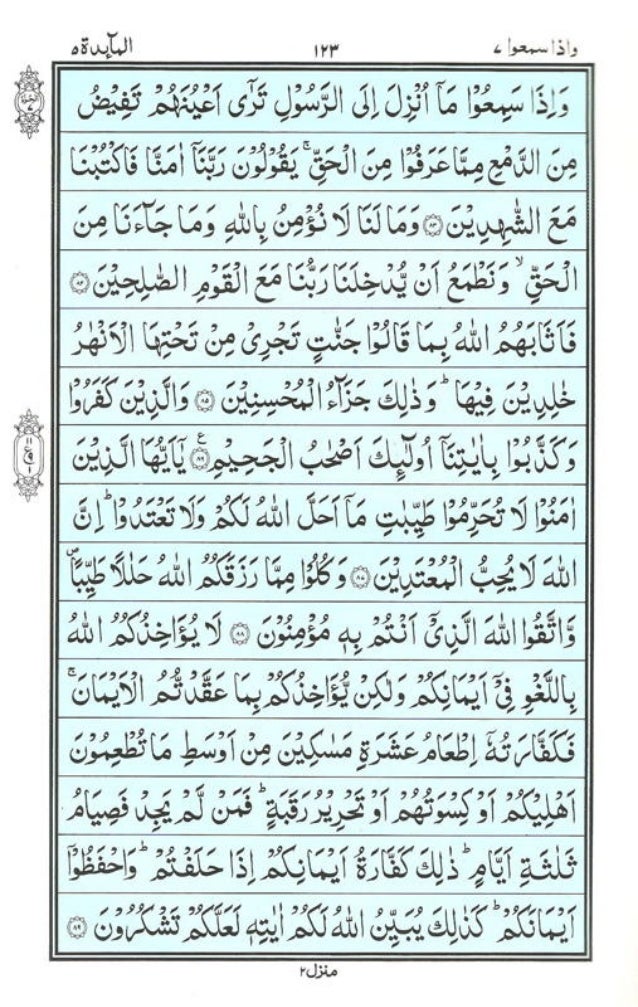 واذا سمعوا ٧ ١٢٣ المآىدة ٥
وَاِذَا سَمِعُوْا مَاۤ اُنْزِلَ اِلَى الرَّسُوْلِ تَرٰۤى اَعْيُنَهُمْ تَفِيْضُ
مِنَ الدَّمْعِ مِمَّا عَرَفُوْا مِنَ الْحَقِّ ۚ يَقُوْلُوْنَ رَبَّنَاۤ اٰمَنَّا فَاكْتُبْنَا
مَعَ الشّٰهِدِيْنَ ۝٨٣ وَمَا لَنَا لَا نُؤْمِنُ بِاللّٰهِ وَمَا جَآءَنَا مِنَ
الْحَقِّ ۙ وَنَطْمَعُ اَنْ يُّدْخِلَنَا رَبُّنَا مَعَ الْقَوْمِ الصّٰلِحِيْنَ ۝٨٤
فَاَثَابَهُمُ اللّٰهُ بِمَا قَالُوْا جَنّٰتٍ تَجْرِيْ مِنْ تَحْتِهَا الْاَنْهٰرُ
خٰلِدِيْنَ فِيْهَا ؕ وَذٰلِكَ جَزَآءُ الْمُحْسِنِيْنَ ۝٨٥ وَالَّذِيْنَ كَفَرُوْا
وَكَذَّبُوْا بِاٰيٰتِنَاۤ اُولٰٓئِكَ اَصْحٰبُ الْجَحِيْمِ ۝٨٦ ع يٰۤاَيُّهَا الَّذِيْنَ
اٰمَنُوْا لَا تُحَرِّمُوْا طَيِّبٰتِ مَاۤ اَحَلَّ اللّٰهُ لَكُمْ وَلَا تَعْتَدُوْا ؕ اِنَّ
اللّٰهَ لَا يُحِبُّ الْمُعْتَدِيْنَ ۝٨٧ وَكُلُوْا مِمَّا رَزَقَكُمُ اللّٰهُ حَلٰلًا طَيِّبًا ۪
وَّاتَّقُوا اللّٰهَ الَّذِيْۤ اَنْتُمْ بِهٖ مُؤْمِنُوْنَ ۝٨٨ لَا يُؤَاخِذُكُمُ اللّٰهُ
بِاللَّغْوِ فِيْۤ اَيْمَانِكُمْ وَلٰكِنْ يُّؤَاخِذُكُمْ بِمَا عَقَّدْتُّمُ الْاَيْمَانَ ۚ
فَكَفَّارَتُهٗۤ اِطْعَامُ عَشَرَةِ مَسٰكِيْنَ مِنْ اَوْسَطِ مَا تُطْعِمُوْنَ
اَهْلِيْكُمْ اَوْ كِسْوَتُهُمْ اَوْ تَحْرِيْرُ رَقَبَةٍ ؕ فَمَنْ لَّمْ يَجِدْ فَصِيَامُ
ثَلٰثَةِ اَيَّامٍ ؕ ذٰلِكَ كَفَّارَةُ اَيْمَانِكُمْ اِذَا حَلَفْتُمْ ؕ وَاحْفَظُوْۤا
اَيْمَانَكُمْ ؕ كَذٰلِكَ يُبَيِّنُ اللّٰهُ لَكُمْ اٰيٰتِهٖ لَعَلَّكُمْ تَشْكُرُوْنَ ۝٨٩
منزل ٢